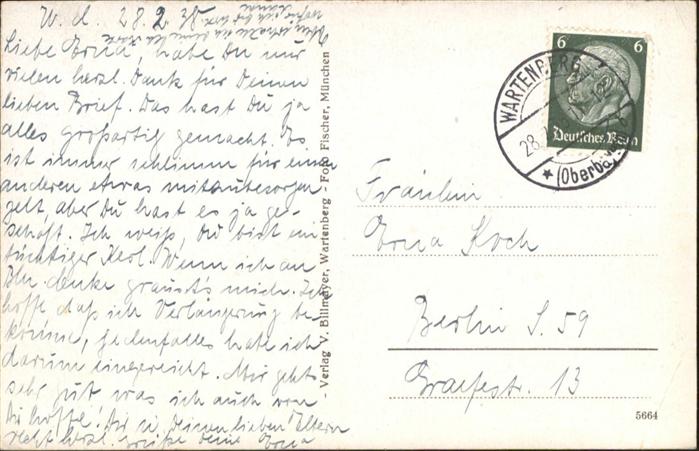 W. d. 28.2.38
Liebe Erna, habe Du nur
vielen herzl. Dank für Deinen
lieben Brief. Das hast Du ja
alles großartig gemacht. Es
ist immer schlimm für einen
anderen etwas mitzubesorgen
gelt, aber Du hast es ja ge-
schafft. Ich weiß, Du bist ein
tüchtiger Kerl. Wenn ich an
Bln. denke graust's mich. Ich
hoffe daß ich Verlängerung be-
komme, jedenfalls habe ich
darum eingereicht. Mir geht's
sehr gut was ich auch von
Dir hoffe! Dir u. Deinen lieben Eltern
recht herzl. Grüße Deine Erna
- Verlag V. Billmayer, Wartenberg - Foto Fischer, München
6 6
Deutsches Reich
WARTENBERG
28.
(Oberbay.)
Fräulein
Erna Koch
Berlin S. 59
Graefestr. 13
5664